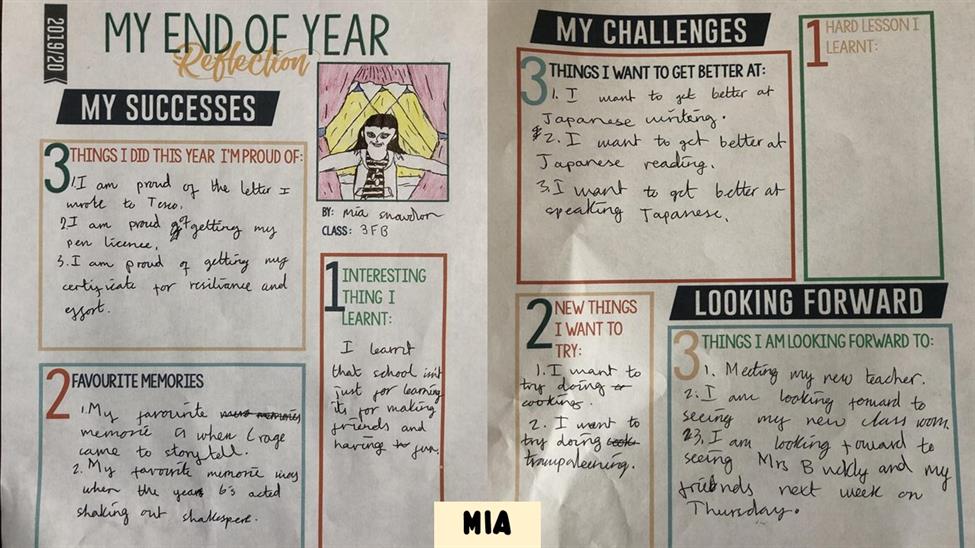 2019/20
MY END OF YEAR
Reflection
MY SUCCESSES
3 THINGS I DID THIS YEAR I'M PROUD OF:
1. I am proud of the letter I
wrote to Tesco.
2. I am proud of getting my
pen licence.
3. I am proud of getting my
certificate for resiliance and
effort.
BY: mia
CLASS: 3FB
2 FAVOURITE MEMORIES
1. My favourite
memorie is when
came to story tell.
2. My favourite memorie was
when the year 6's acted
shaking out shakespere.
1 INTERESTING
THING I
LEARNT:
I learnt
that school isn't
just for learning
its for making
friends and
having fun.
MY CHALLENGES
3 THINGS I WANT TO GET BETTER AT:
1. I want to get better at
Japanese writing.
2. I want to get better at
Japanese reading.
3. I want to get better at
speaking Japanese.
1 HARD LESSON I
LEARNT:
2 NEW THINGS
I WANT TO
TRY:
1. I want to
try doing
cooking.
2. I want to
try doing
trampaleening.
LOOKING FORWARD
3 THINGS I AM LOOKING FORWARD TO:
1. Meeting my new teacher.
2. I am looking forward to
seeing my new class room.
3. I am looking forward to
seeing Mrs Buckly and my
friends next week on
Thursday.
MIA